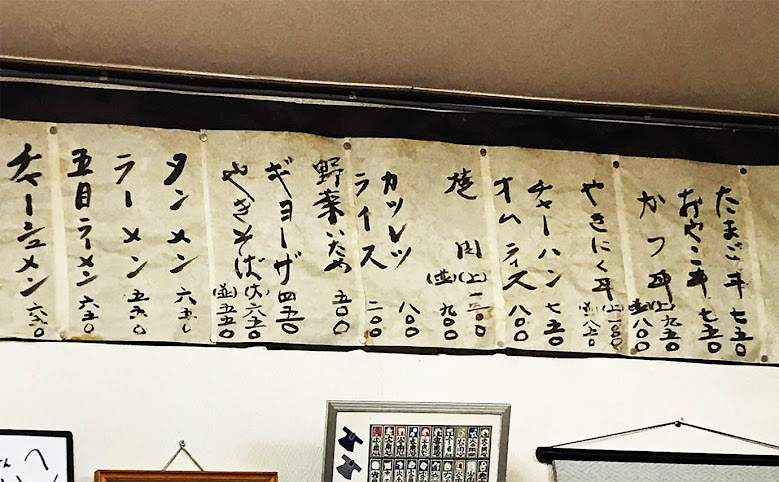 たまご丼 七五〇
おやこ丼 七五〇
かつ丼 (上)九五〇
(並)八〇〇
やきにく丼 (上)
(並)八五〇
チャーハン 七五〇
オムライス 八〇〇
焼肉 (上)一二〇〇
(並)九〇〇
カツレツ 八〇〇
ライス 二〇〇
野菜いため 五〇〇
ギョーザ 四五〇
やきそば (大)六五〇
(並)五五〇
タンメン 六五〇
ラーメン 五五〇
五目ラーメン 六五〇
チャーシュメン 六五〇